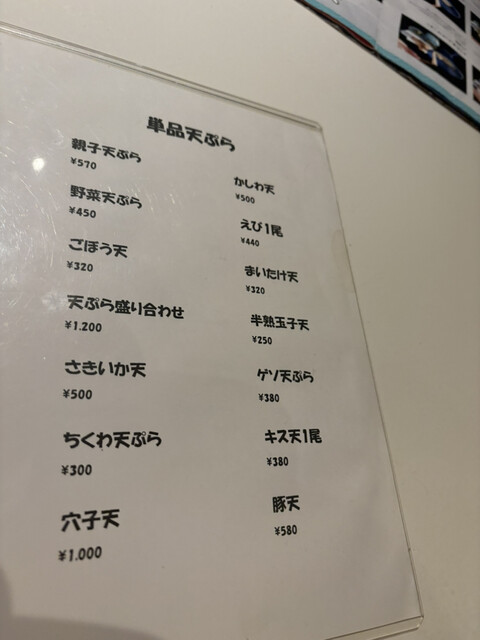 単品天ぷら
親子天ぷら
¥570
野菜天ぷら
¥450
ごぼう天
¥320
天ぷら盛り合わせ
¥1.200
さきいか天
¥500
ちくわ天ぷら
¥300
穴子天
¥1.000
かしわ天
¥500
えび1尾
¥440
まいたけ天
¥320
半熟玉子天
¥250
ゲソ天ぷら
¥380
キス天1尾
¥380
豚天
¥580